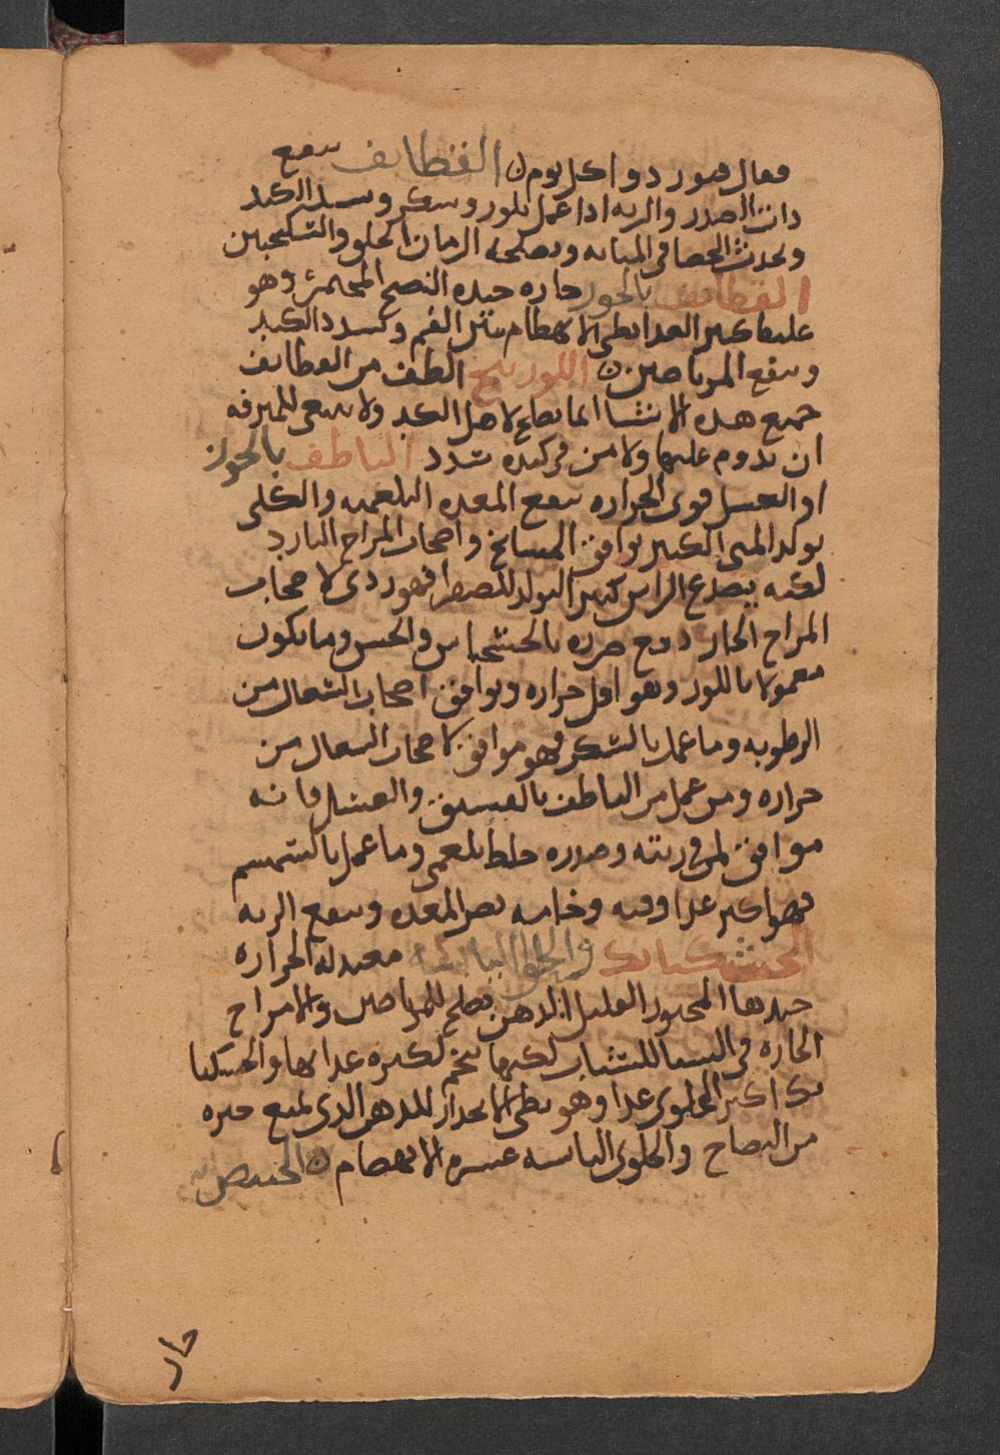 فقال قبور دواكل يوم ن القطايف ينفع
ذات الصدر والريه اذا عمل بلوز وسكر ويسدد الكبد
ويحدث الحصا في المثانه ويصلحه الرمان الحلو والسكنجبين
القطايف بالجوز حاره جيده النضج المختمر وهو
غليظ كثير الغذا بطي الانهضام ينتن الفم ويسدد الكبد
وينفع المرتاضين ن اللوزينج الطف من القطايف
جميع هذه الاشيا انما تصلح لاهل الكد ولا ينبغي للمترفه
ان يدوم عليها ولا من في كبده سدد الناطف بالجوز
او العسل قوي الحراره ينفع المعده البلغميه والكلى
يولد المني الكثير يوافق المشايخ واصحاب المزاج البارد
لكنه يصدع الراس كثير التولد للصفرا فهو ردي لاصحاب
المزاج الحار دفع ضرره بالخشخاش والخس وما يكون
معمولا باللوز وهو اقل حراره ويوافق اصحاب السعال من
الرطوبه وما عمل بالسكر فهو موافق لاصحاب السعال من
حراره ومن عمل من الناطف بالفستق والعسل فانه
موافق لمن في ريته وصدره خلط بلغمي وما عمل بالسمسم
فهو اكثر غذا وفيه وخامه يضر المعده وينفع الريه
الخشكنانك والحلوا اليابسه معتدله الحراره
جيدها المخبوز القليل الدهن يصلح للمرتاضين والامزاج
الحاره في الشتا للشباب لكنها تتخم لكثره غذايها والخشكنا
نك اكثر الحلوى غذا وهو بطي الانحدار للدهن الذي يمنع خبزه
من النضاج والحلوى اليابسه عسره الانهضام ن الخبيص
حار